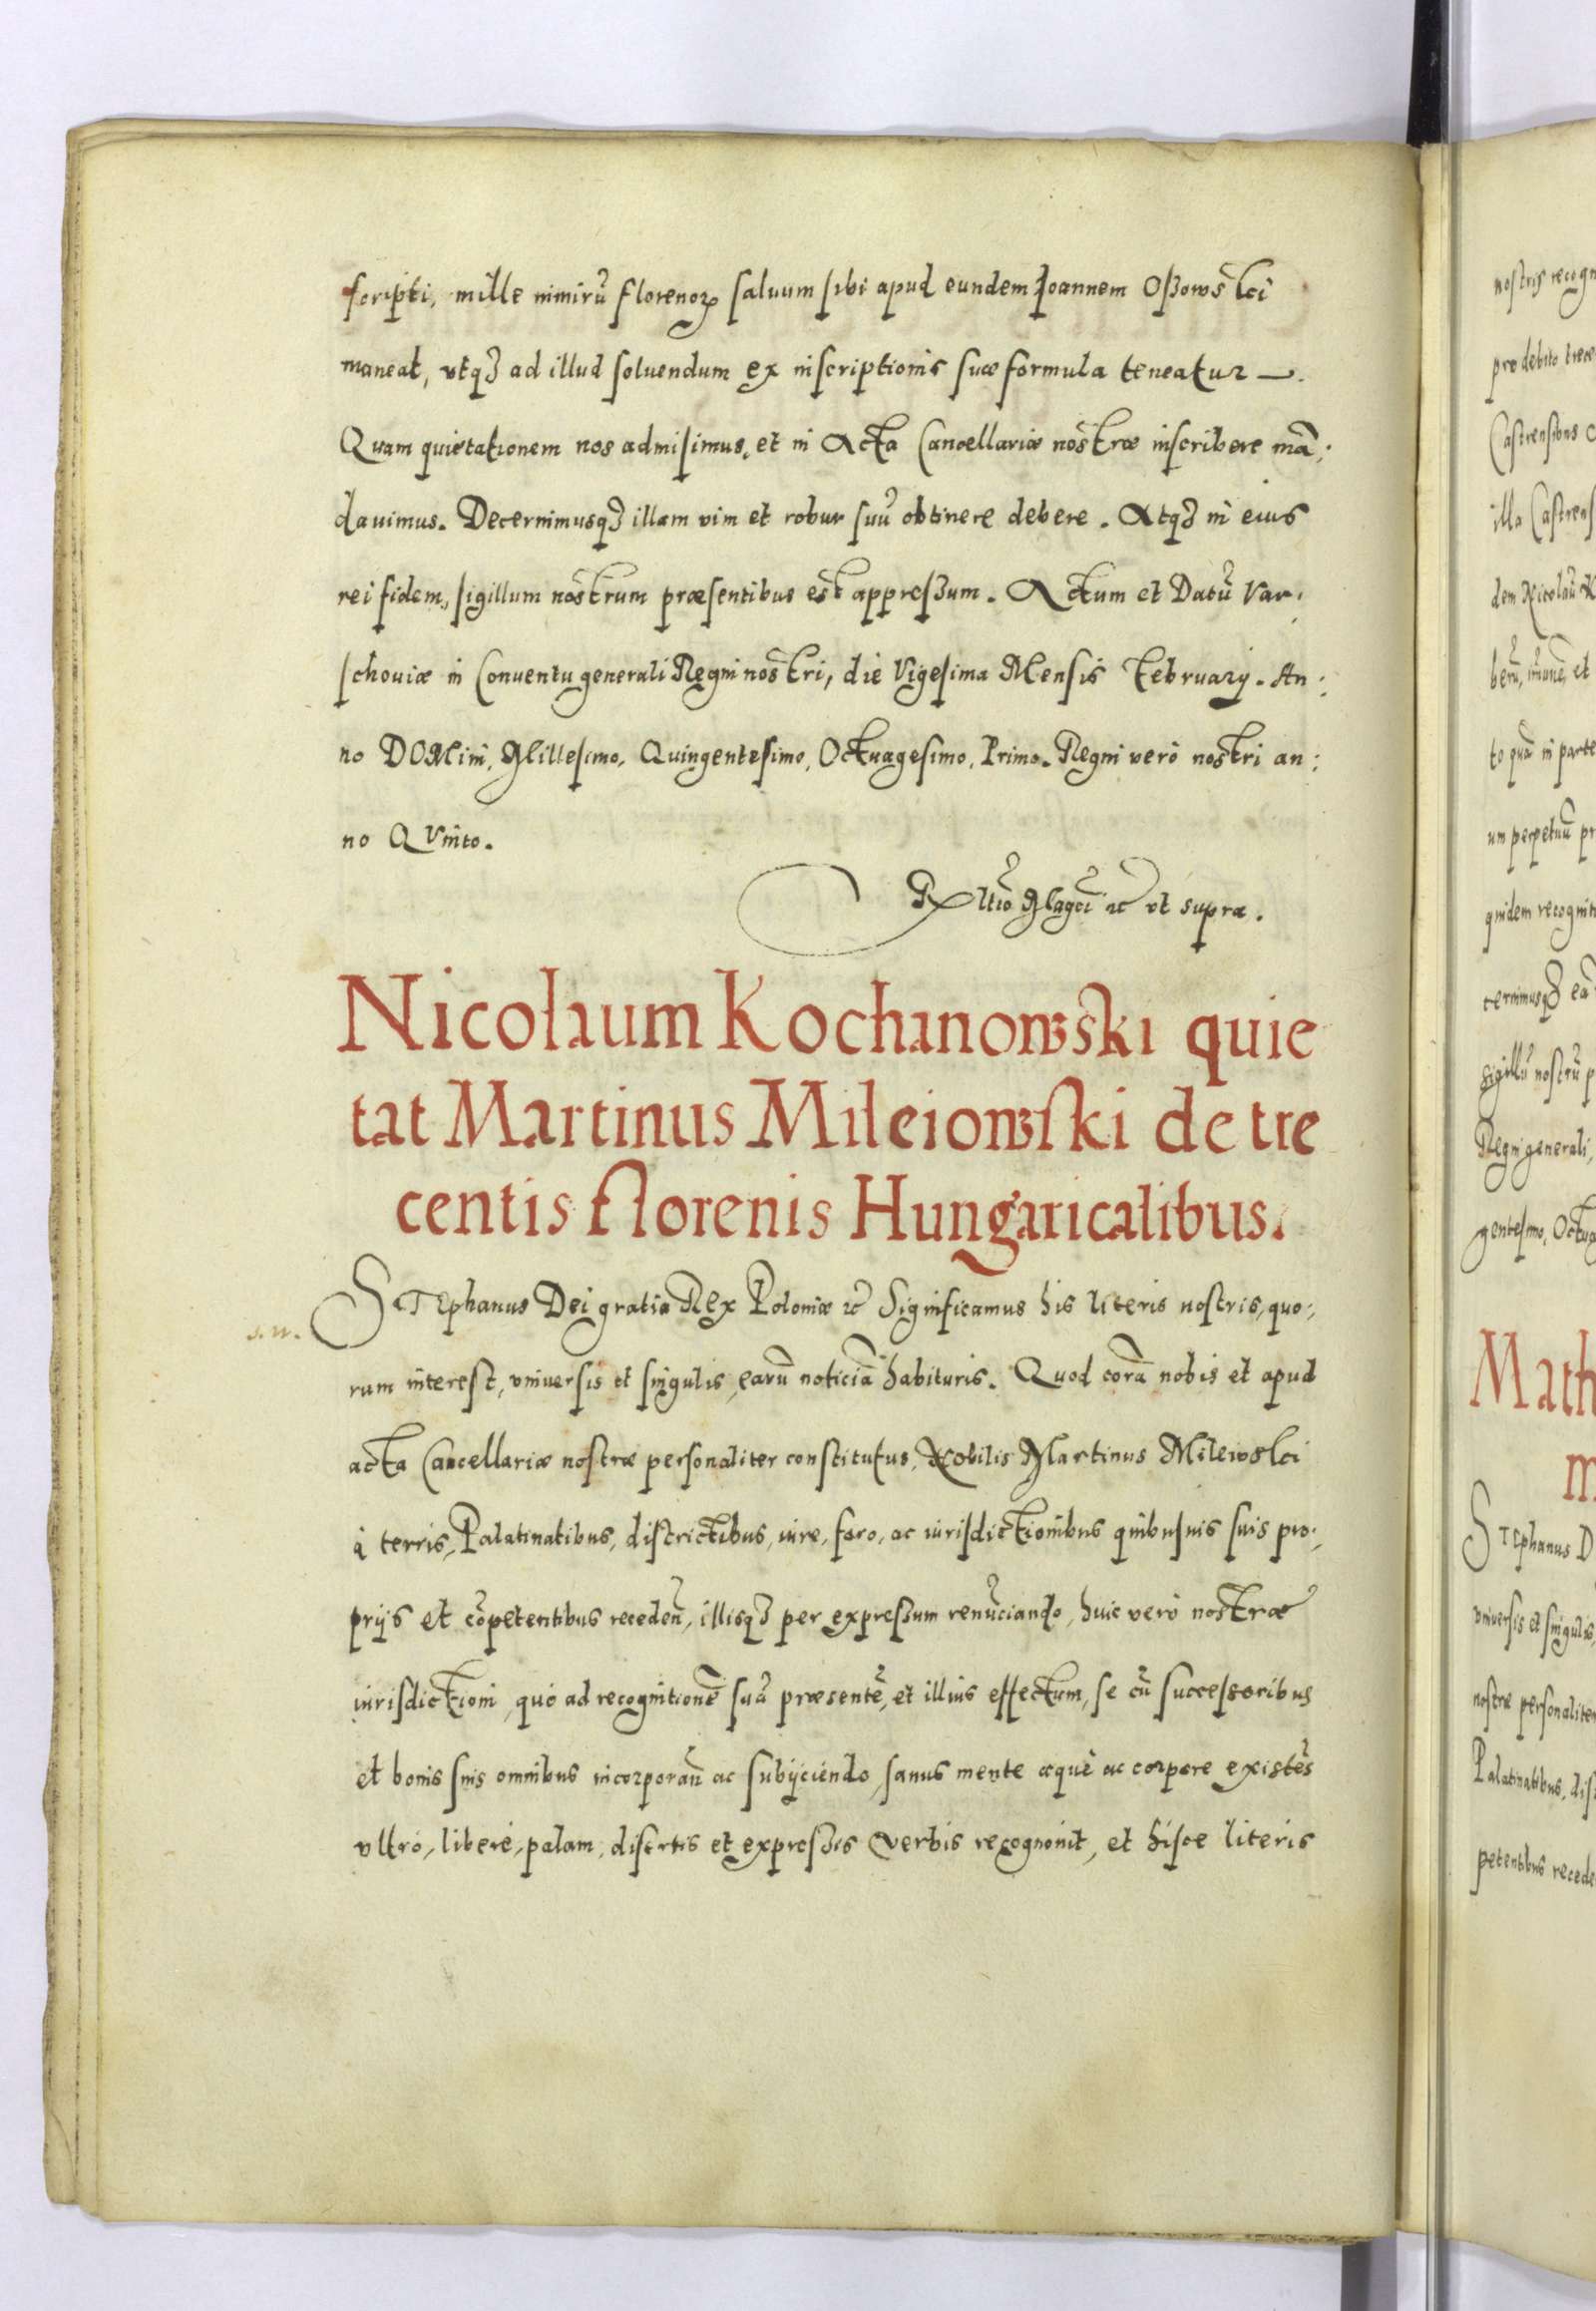 scripti, mille nimirũ florenoꝝ saluum sibi apud eundem Joannem Oßowski
maneat, vtqꝫ ad illud soluendum ex inscriptionis suæ formula teneatur —.
Quam quietationem nos admisimus, et in Acta Cancellariæ nostræ inscribere mã:
dauimus. Decernimusqꝫ illam vim et robur suũ obtinere debere. Atqꝫ in eius
rei fidem, sigillum nostrum præsentibus est appreßum. Actum et Datũ Var:
schouiæ in Conuentu generali Regni nostri, die Vigesima Mensis Februarij. An:
no DOMini, Millesimo, Quingentesimo, Octuagesimo, Primo. Regni verò nostri an:
no QVinto.
Rltio Magci ꝛc vt supra.
Nicolaum Kochanowski quie
tat Martinus Mileiowski de tre
centis florenis Hungaricalibus.
STEphanus Dei gratia Rex Poloniæ ꝛc Significamus his literis nostris, quo:
s. n.
rum interest, vniuersis et singulis, earũ noticiã habituris. Quod corã nobis et apud
acta Cancellariæ nostræ personaliter constitutus, Nobilis Martinus Milewski
à terris, Palatinatibus, districtibus, iure, foro, ac iurisdictionibus quibusuis suis pro:
prijs et cõpetentibus recedeñ, illisqꝫ per expreßum renũciando, huic verò nostræ
iurisdictioni, quò ad recognitionẽ suã præsentẽ, et illius effectum, se cũ successoribus
et bonis suis omnibus incorporañ ac subijciendo, sanus mente æquè ac corpore existẽs
vltrò, liberè, palam, disertis et expreßis verbis recognouit, et hisce literis
nostris recogn
pro debito trece
Castrensibus
illa Castrens
dem Nicolaũ K
berũ, imunẽ, et
to quã in parte
um perpetuũ pr
quidem recognit
cernimusqꝫ eã
sigillũ nostrũ p
Regni generali,
gentesimo, Octua
Math
m
STEphanus D
vniuersis et singulis,
nostræ personaliter
Palatinatibus, dis
petentibus recede